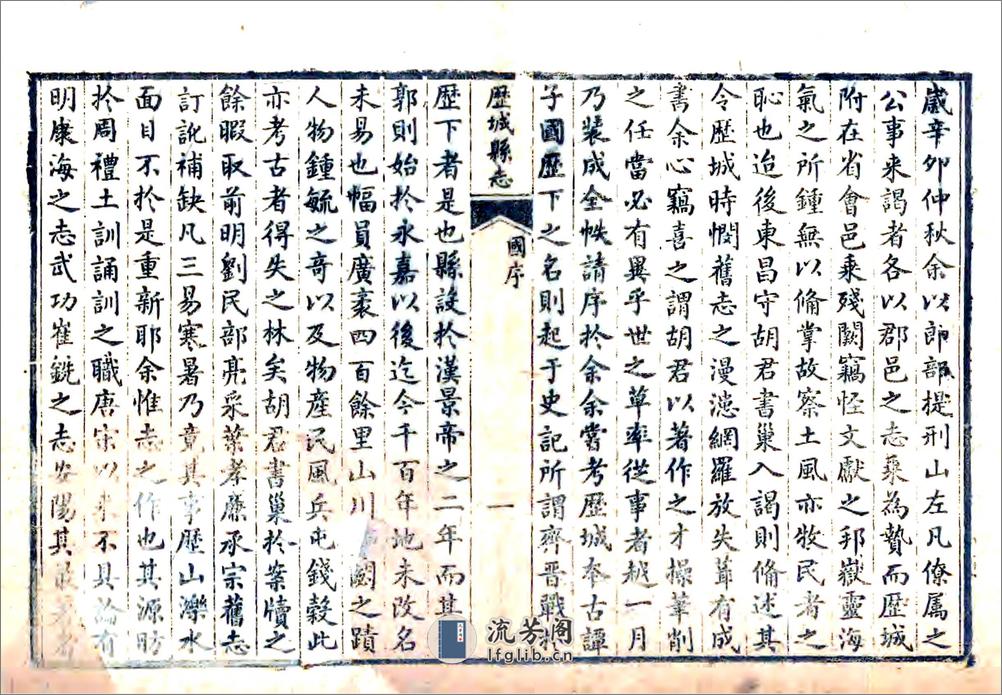 歲辛夘仲秋余以郎部提刑山左凡僚属之
公事来謁者各以郡邑之志乘為贄而歷城
附在省會邑乘残闕竊怪文獻之邦嶽靈海
氣之所鍾無以俻掌故察土風亦牧民者之
恥也迨後東昌守胡君書巢入謁則俻述其
令歷城時憫舊志之漫漶網羅放失葺有成
書余心竊喜之謂胡君以著作之才操筆削
之任當必有異乎世之草率從事者越一月
乃裝成全帙請序於余余嘗考歷城本古譚
子國歷下之名則起于史記所謂齊晋戰於
歷城縣志
國序
一
歷下者是也縣設於漢景帝之二年而其
郭則始於永嘉以後迄今千百年地未改名
未易也幅員廣袤四百餘里山川之蹟
人物鍾毓之奇以及物產民風兵屯錢穀此
亦考古者得失之林矣胡君書巢於案牘之
餘暇取前明劉民部亮采葉孝廉承宗舊志
訂訛補缺凡三易寒暑乃竟其事歷山濼水
面目不於是重新耶余惟志之作也其源昉
於周禮土訓誦訓之職唐宋以来不具論有
明康海之志武功崔銑之志安陽其最著者
流芳阁
lfglib.cn